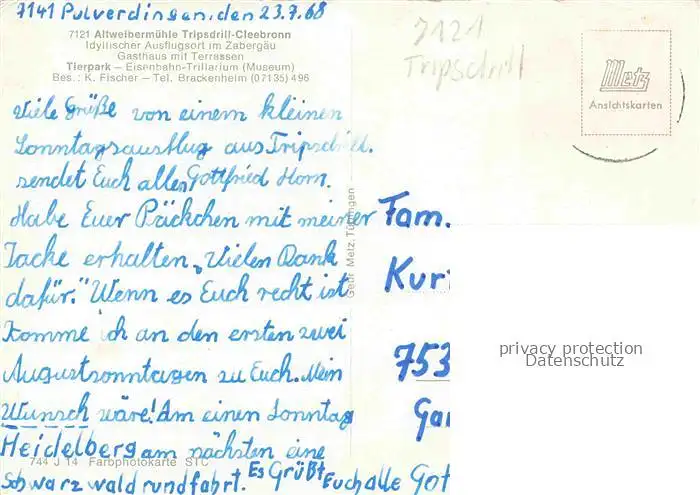 7141 Pulverdingen, den 23.7.68
7121 Altweibermühle Tripsdrill-Cleebronn
Idyllischer Ausflugsort im Zabergäu
Gasthaus mit Terrassen
Tierpark – Eisenbahn-Trillarium (Museum)
Bes.: K. Fischer – Tel. Brackenheim (07135) 496
7121
Tripsdrill
Metz
Ansichtskarten
Viele Grüße von einem kleinen
Sonntagsausflug aus Tripsdrill.
sendet Euch allen Gottfried Horn.
Habe Euer Päckchen mit meiner
Jacke erhalten „Vielen Dank
dafür.“ Wenn es Euch recht ist
komme ich an den ersten zwei
Augustsonntagen zu Euch. Mein
Wunsch wäre! Am einen Sonntag
Heidelberg am nächsten eine
Schwarzwaldrundfahrt. Es Grüßt Euch alle Got
744 J 14 Farbphotokarte STC
Gebr. Metz, Tübingen
Fam.
Kur
753
Gar
privacy protection
Datenschutz